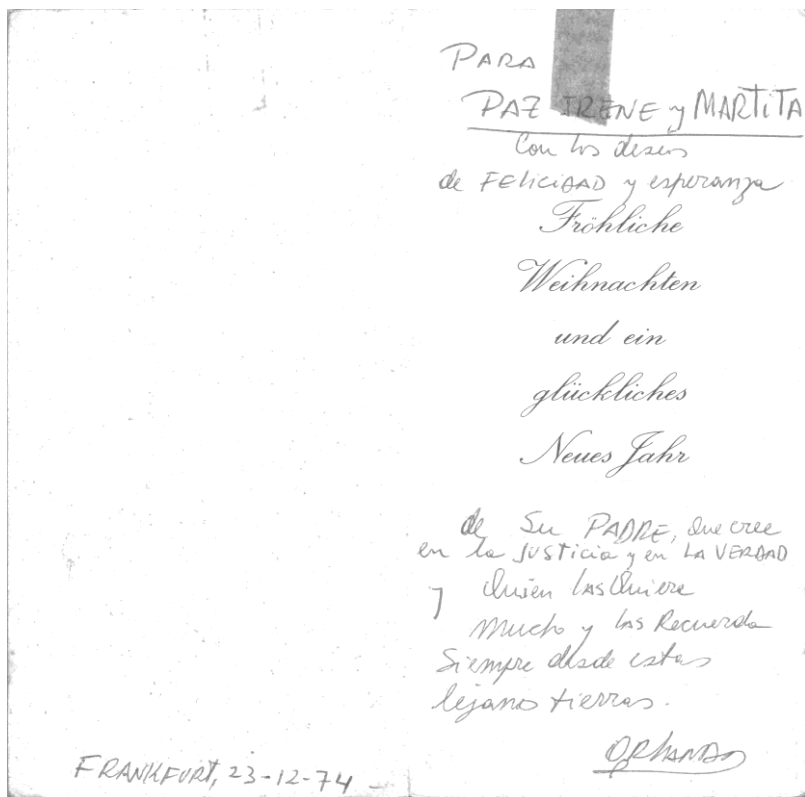 PARA
PAZ IRENE y MARTITA
Con los deseos
de FELICIDAD y esperanza
Fröhliche
Weihnachten
und ein
glückliches
Neues Jahr
de Su PADRE, que cree
en la JUSTICIA y en LA VERDAD
y Quien las Quiere
mucho y las Recuerda
Siempre desde estas
lejano tierras.
ORLANDO
FRANKFURT, 23-12-74